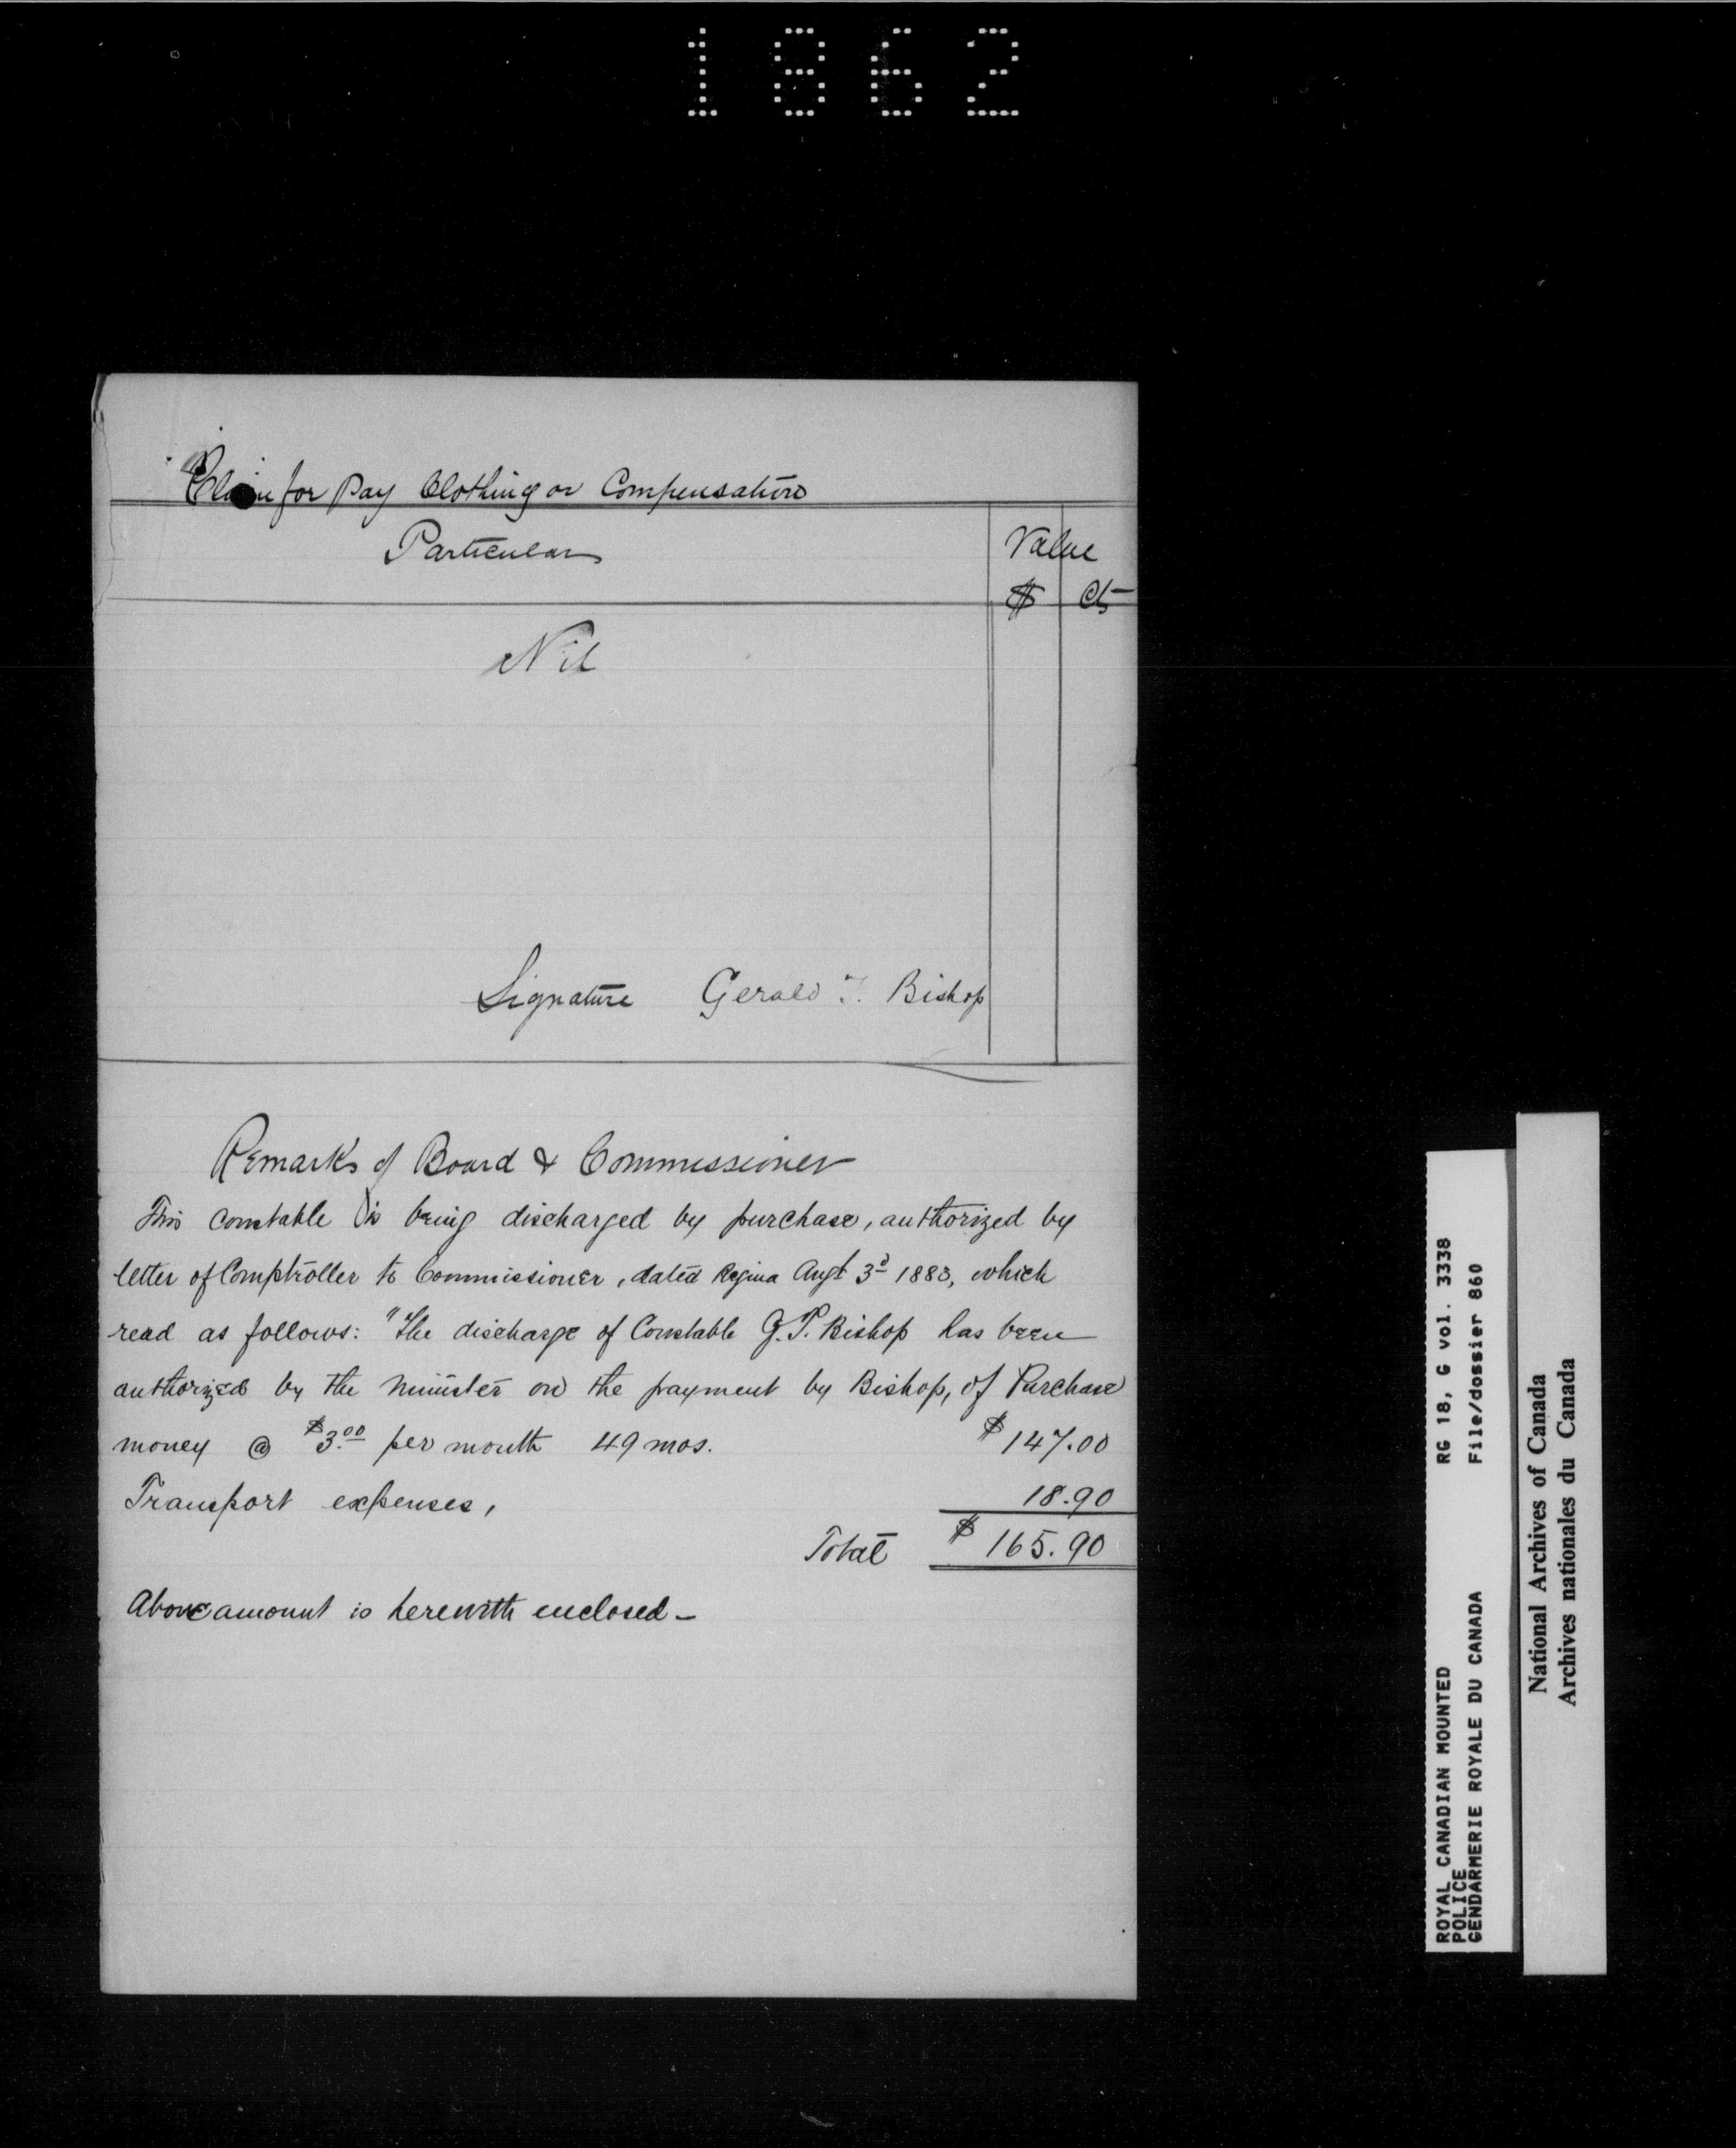 1862
Claim for Pay Clothing or Compensation
Particulars
Value
$ Cts
Nil
Signature Gerald T. Bishop
Remarks of Board & Commissioner
This Constable is being discharged by purchase, authorized by
letter of Comptroller to Commissioner, dated Regina Augt 3d 1883, which
read as follows: "The discharge of Constable G.T. Bishop has been
authorized by the Minister on the payment by Bishop, of Purchase
money @ $3.00 per month 49 mos. $147.00
Transport expenses, 18.90
Total $165.90
Above amount is herewith enclosed -
ROYAL CANADIAN MOUNTED RG 18, G vol. 3338
POLICE
GENDARMERIE ROYALE DU CANADA File/dossier 860
National Archives of Canada
Archives nationales du Canada